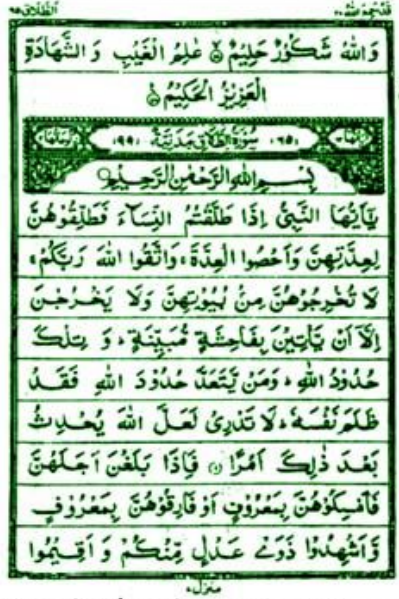 قد سمع الله ٢٨ الطلاق ٦٥
وَاللّٰهُ شَكُوْرٌ حَلِيْمٌ ۝ عٰلِمُ الْغَيْبِ وَ الشَّهَادَةِ
الْعَزِيْزُ الْحَكِيْمُ ۝
(٦٥) سُوْرَةُ الطَّلَاقِ مَدَنِيَّةٌ (٩٩)
بِسْمِ اللّٰهِ الرَّحْمٰنِ الرَّحِيْمِ
يٰٓاَيُّهَا النَّبِيُّ اِذَا طَلَّقْتُمُ النِّسَآءَ فَطَلِّقُوْهُنَّ
لِعِدَّتِهِنَّ وَ اَحْصُوا الْعِدَّةَ ۚ وَاتَّقُوا اللّٰهَ رَبَّكُمْ ۚ
لَا تُخْرِجُوْهُنَّ مِنْۢ بُيُوْتِهِنَّ وَلَا يَخْرُجْنَ
اِلَّاۤ اَنْ يَّاْتِيْنَ بِفَاحِشَةٍ مُّبَيِّنَةٍ ؕ وَ تِلْكَ
حُدُوْدُ اللّٰهِ ؕ وَمَنْ يَّتَعَدَّ حُدُوْدَ اللّٰهِ فَقَدْ
ظَلَمَ نَفْسَهٗ ؕ لَا تَدْرِيْ لَعَلَّ اللّٰهَ يُحْدِثُ
بَعْدَ ذٰلِكَ اَمْرًا ۝ فَاِذَا بَلَغْنَ اَجَلَهُنَّ
فَاَمْسِكُوْهُنَّ بِمَعْرُوْفٍ اَوْ فَارِقُوْهُنَّ بِمَعْرُوْفٍ
وَّ اَشْهِدُوْا ذَوَيْ عَدْلٍ مِّنْكُمْ وَ اَقِيْمُوا
منزل